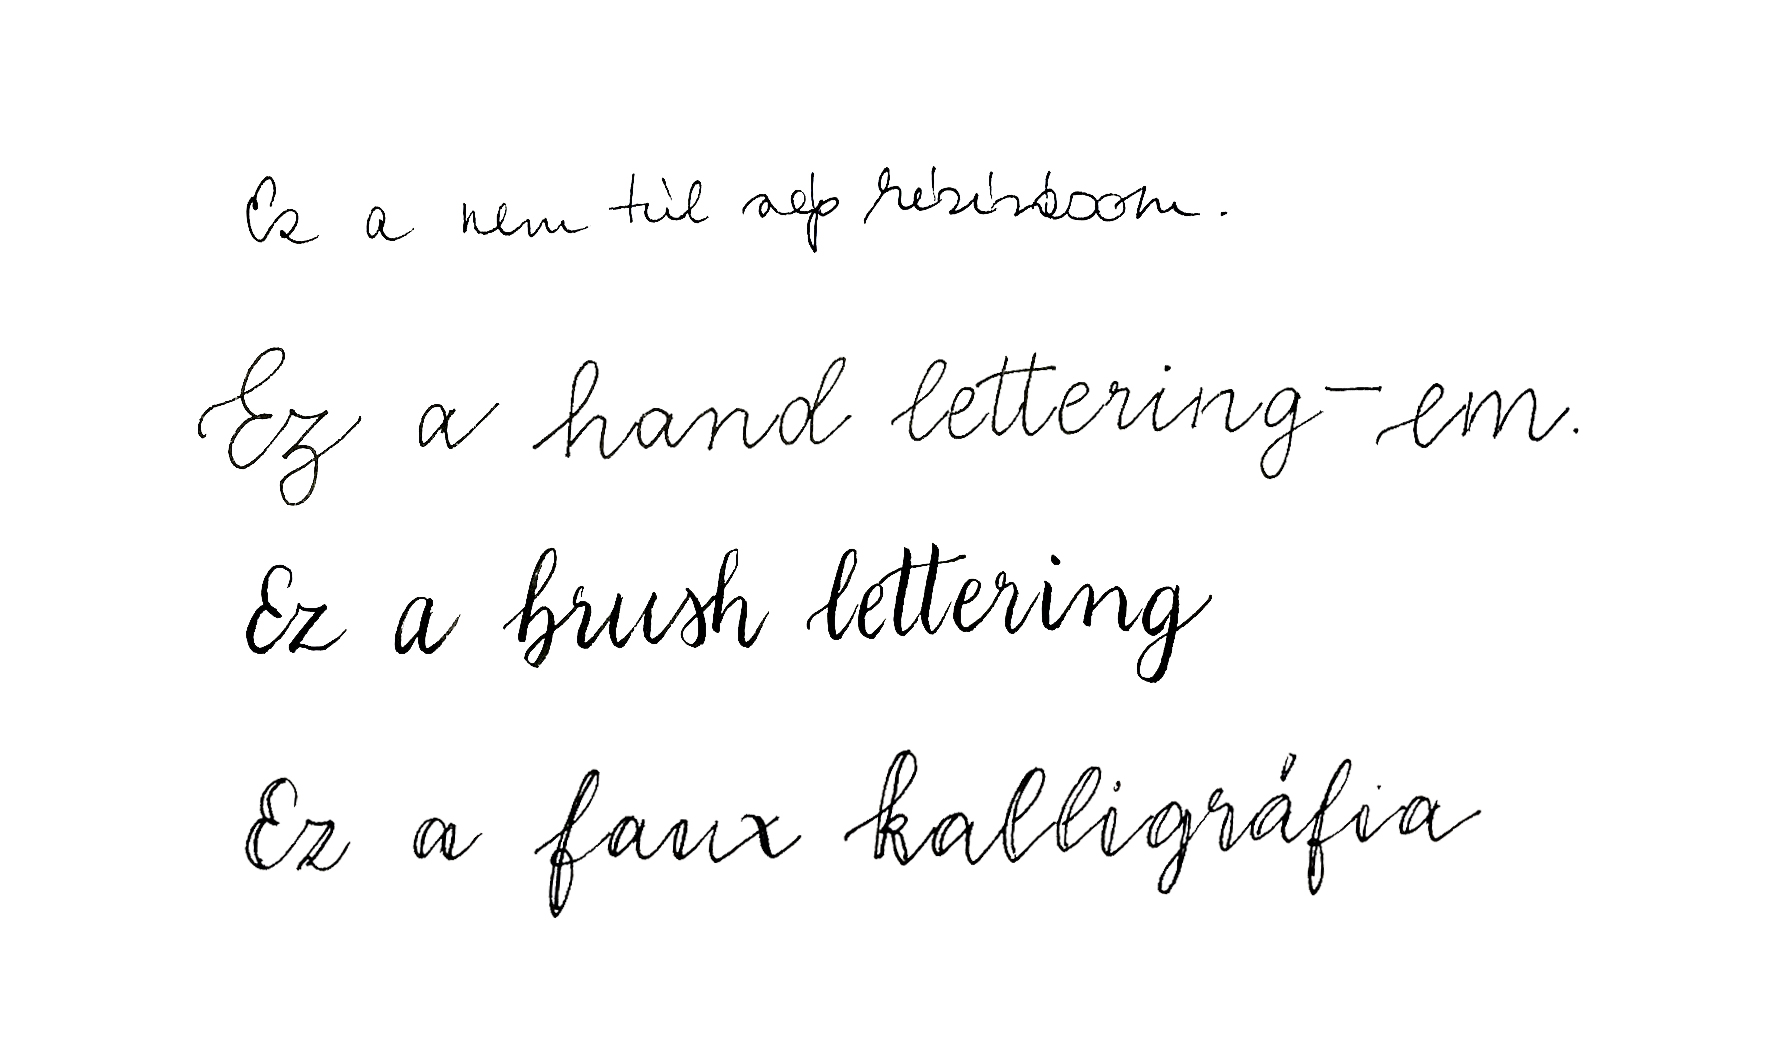 Ez a nem túl szép kézírásom.
Ez a hand lettering-em.
Ez a brush lettering
Ez a faux kalligráfia